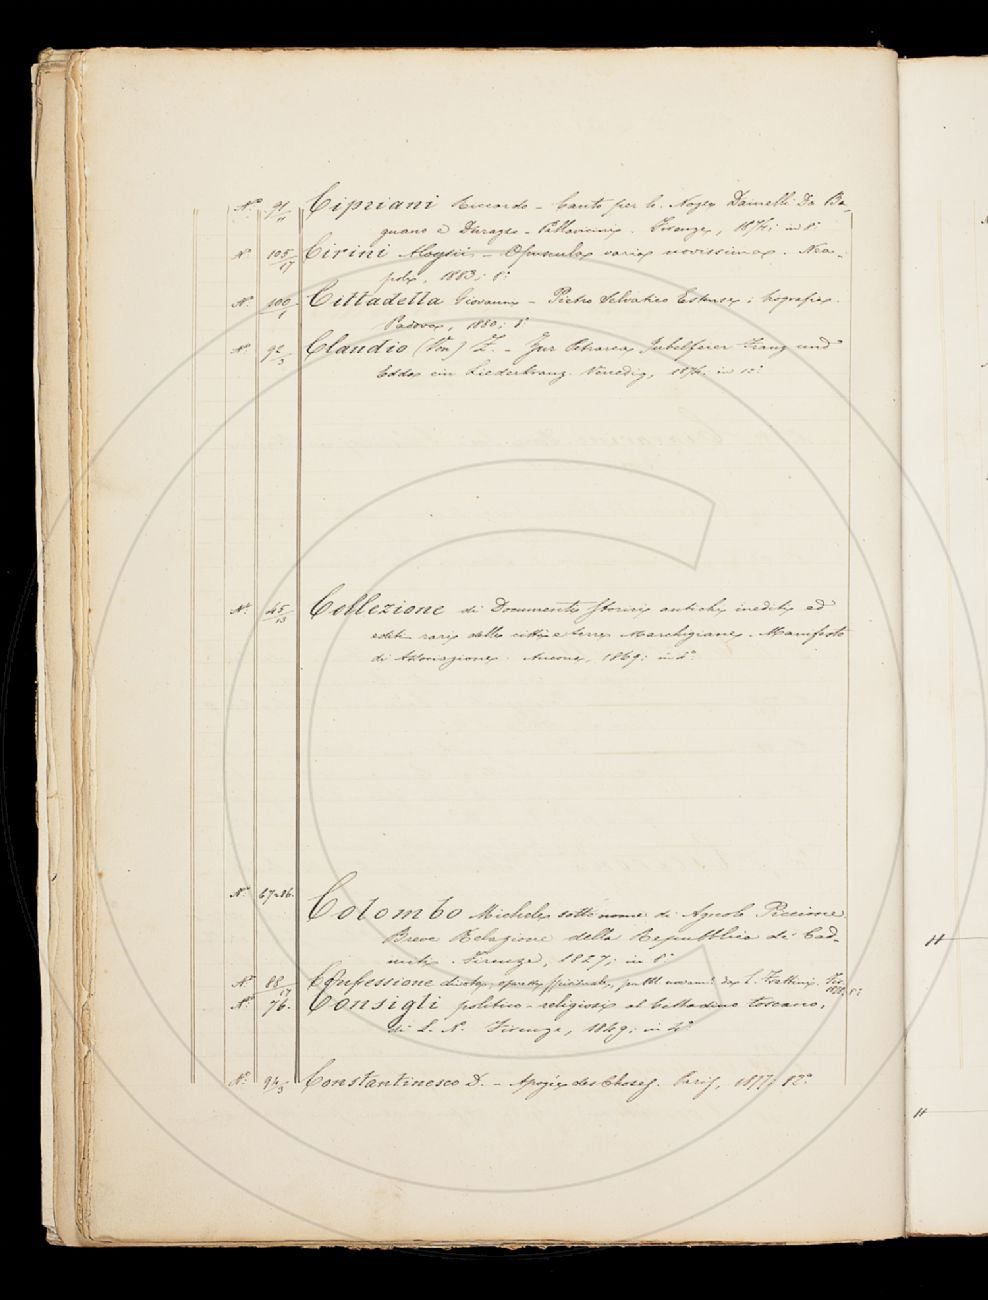 N.° 91/11 Cipriani Riccardo - Canto per le Nozze Dainelli Da Ba-
gnano e Durazzo - Pallavicini. Firenze, 1874; in 8.°
N.° 105/17 Cirini Aloysii - Opuscula varia novissima. Nea-
poli, 1883; 8.°
N.° 100/1 Cittadella Giovanni - Pietro Selvatico Estense; biografia.
Padova, 1880; 8.°
N.° 92/3 Claudio (Von) Z. - Zur Petrarca Jubelfeier Franz und
ein Liederkranz. Venedig, 1874; in 12.°
N.° 45/13 Collezione di Documenti storici antichi inediti ed
editi rari delle città e terre Marchigiane. Manifesto
di Associazione. Ancona, 1869; in 4.°
N.° 67-86. Colombo Michele sotto nome di Agnolo Piccione
Breve Relazione della Repubblica di Cad-
miti. Firenze, 1827; in 8.°
N.° 88/17 Confessione
N.° 76. Consigli politico - religiosi al Cittadino toscano,
di L. N. Firenze, 1849; in 4.°
N.° 94/3 Constantinesco D. - Apogée des Choses. Paris, 1877; 12.°